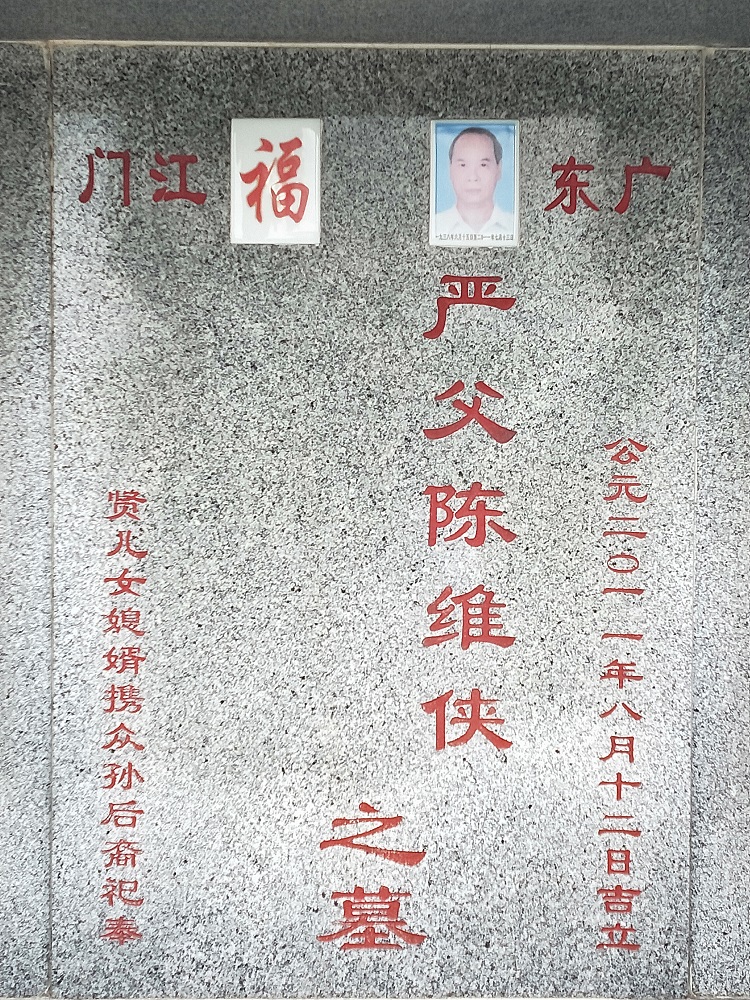 广东
江门
福
公元二〇一一年八月十二日吉立
严父陈维侠
之墓
贤儿女媳婿携众孙后裔祀奉